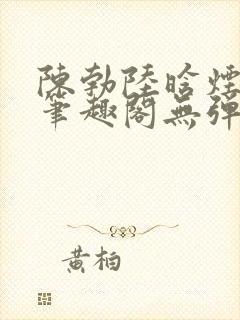 陳勃陸晗煙
筆趣閣無彈
黃柏